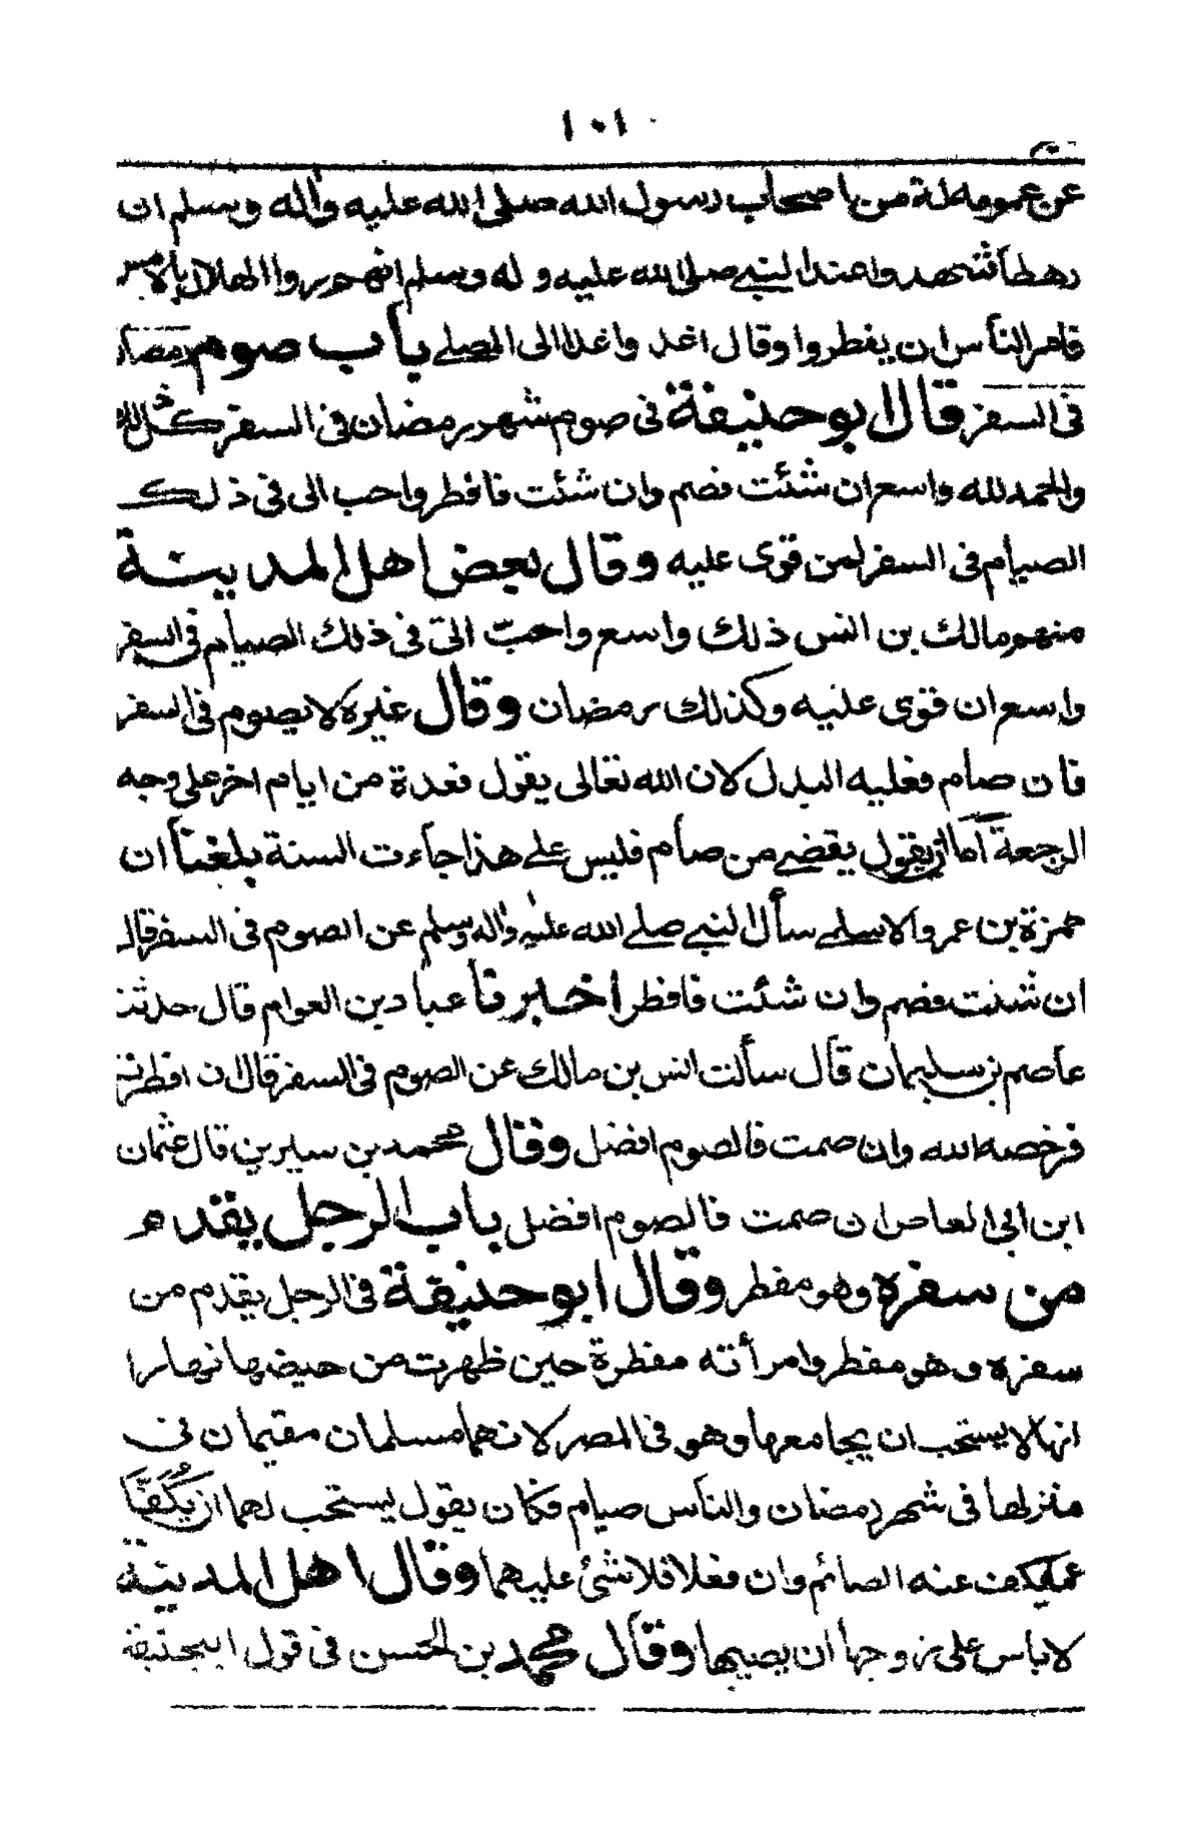 ١٠١
عن عمومة له من اصحاب رسول الله صلى الله عليه وآله وسلم ان
رهطا شهدوا عند النبي صلى الله عليه و له وسلم انهم راوا الهلال بالامس
فامر الناس ان يفطروا وقال اغد واغدا الى المصلے باب صوم رمضان
فى السفر قال ابو حنيفة فى صوم شهر رمضان فى السفر كل ذلك
والحمد لله واسع ان شئت فصم وان شئت فافطر واحب الى فى ذلك
الصيام فى السفر لمن قوى عليه وقال بعض اهل المدينة
منهم مالك بن انس ذلك واسع واحبّ الىّ فى ذلك الصيام فى السفر
واسع ان قوى عليه وكذلك رمضان وقال غيره لا يصوم فى السفر
فان صام فعليه البدل لان الله تعالى يقول فعدة من ايام اخر على وجه
الرجعة اما ان يقول يقضے من صام فليس علے هذا جاءت السنة بلغنا ان
حمزة بن عمرو الاسلمے سأل النبے صلے الله عليه وآله وسلم عن الصوم فى السفر قال
ان شئت فصم وان شئت فافطر اخبرنا عباد بن العوام قال حدثنا
عاصم بن سليمان قال سألت انس بن مالك عن الصوم فى السفر قال ان افطرت
فرخصه الله وان صمت فالصوم افضل وقال محمد بن سيرين قال عثمان
ابن ابى العاص ان صمت فالصوم افضل باب الرجل يقدم
من سفره وهو مفطر وقال ابو حنيفة فى الرجل يقدم من
سفره وهو مفطر وامرأته مفطرة حين طهرت من حيضها نهارا
انه لا يستحب ان يجامعها وهو فى المصر لانهما مسلمان مقيمان فى
منزلهما فى شهر رمضان والناس صيام فكان يقول يستحب لهما ان يكفّا
عما يكف عنه الصائم وان فعلا فلا شئ عليهما وقال اهل المدينة
لا باس على زوجها ان يصيبها وقال محمد بن الحسن فى قول ابيحنيفة